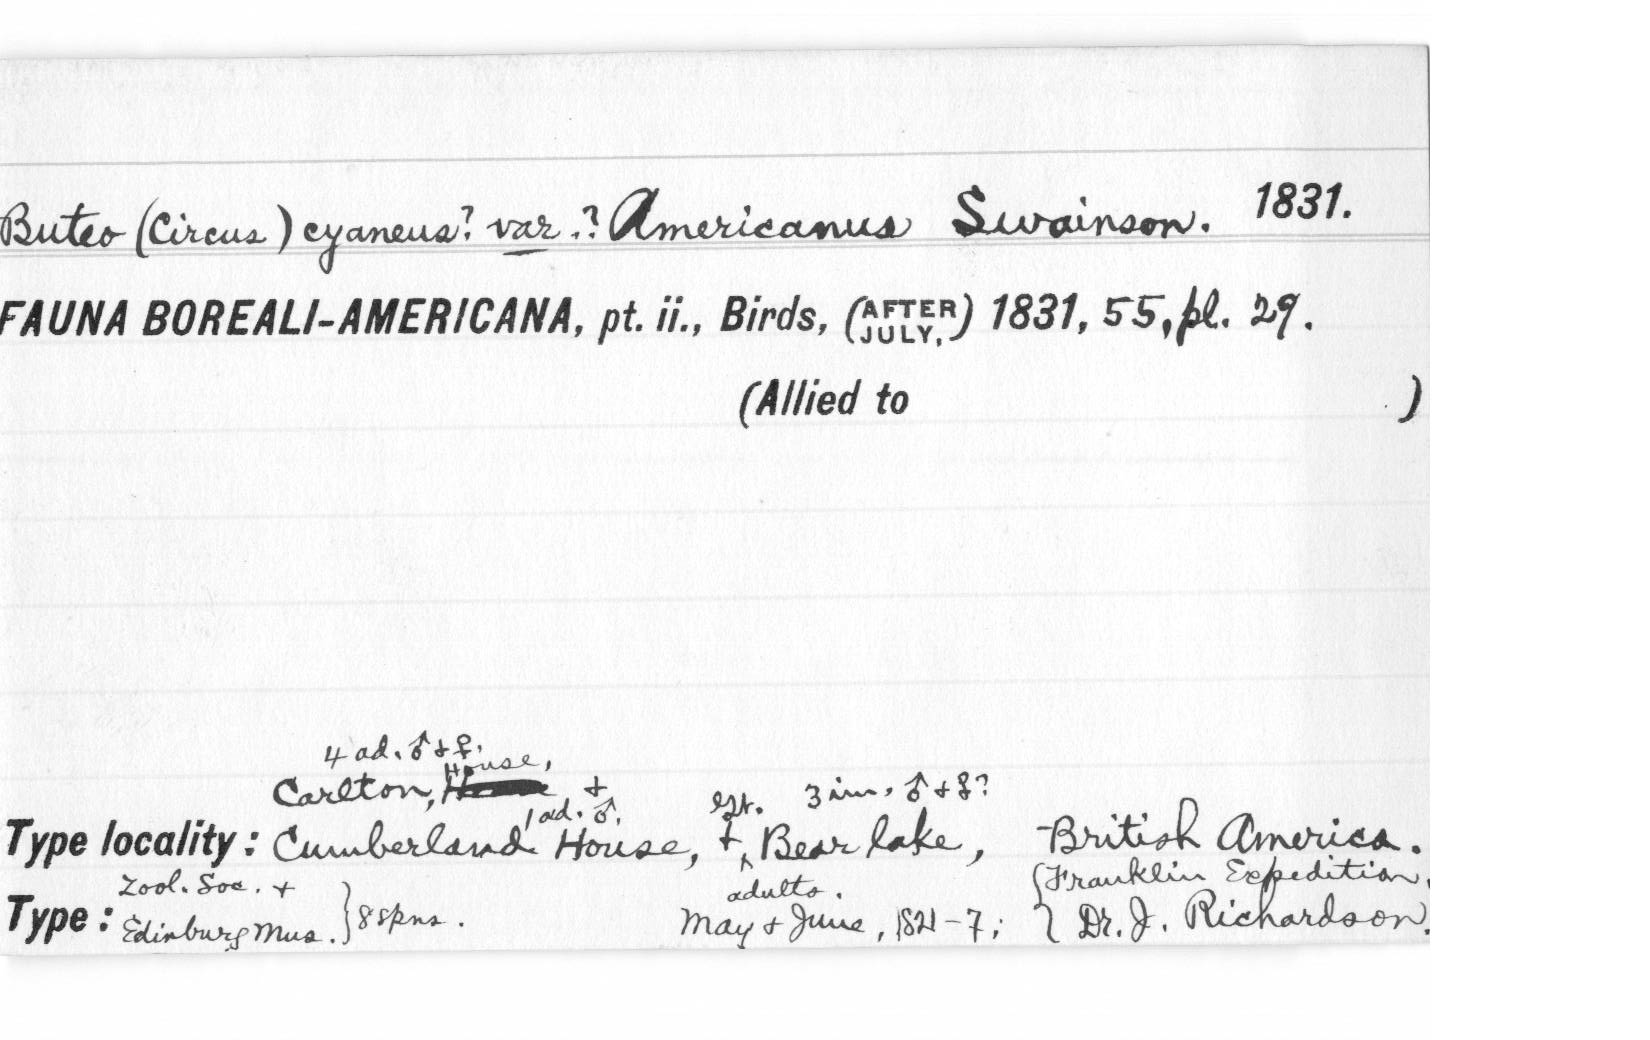 Buteo (Circus) cyaneus? var.? Americanus Swainson. 1831.
FAUNA BOREALI-AMERICANA, pt. ii., Birds, (AFTER JULY,) 1831, 55, pl. 29.
(Allied to )
4 ad. ♂ + ♀.
House,
Carlton, +
1 ad. ♂. Gt. 3 im. ♂ + ♀?
Type locality: Cumberland House, + Bear lake, British America.
Zool. Soc. + adults. Franklin Expedition.
Type: Edinburg Mus. } 8 spns. May + June, 1821-7; { Dr. J. Richardson.